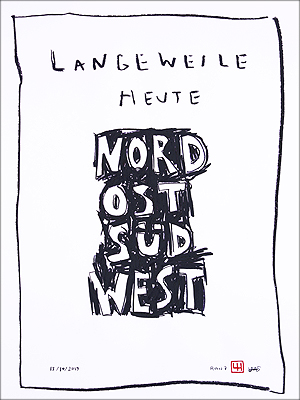 LANGEWEILE
HEUTE
NORD
OST
SÜD
WEST